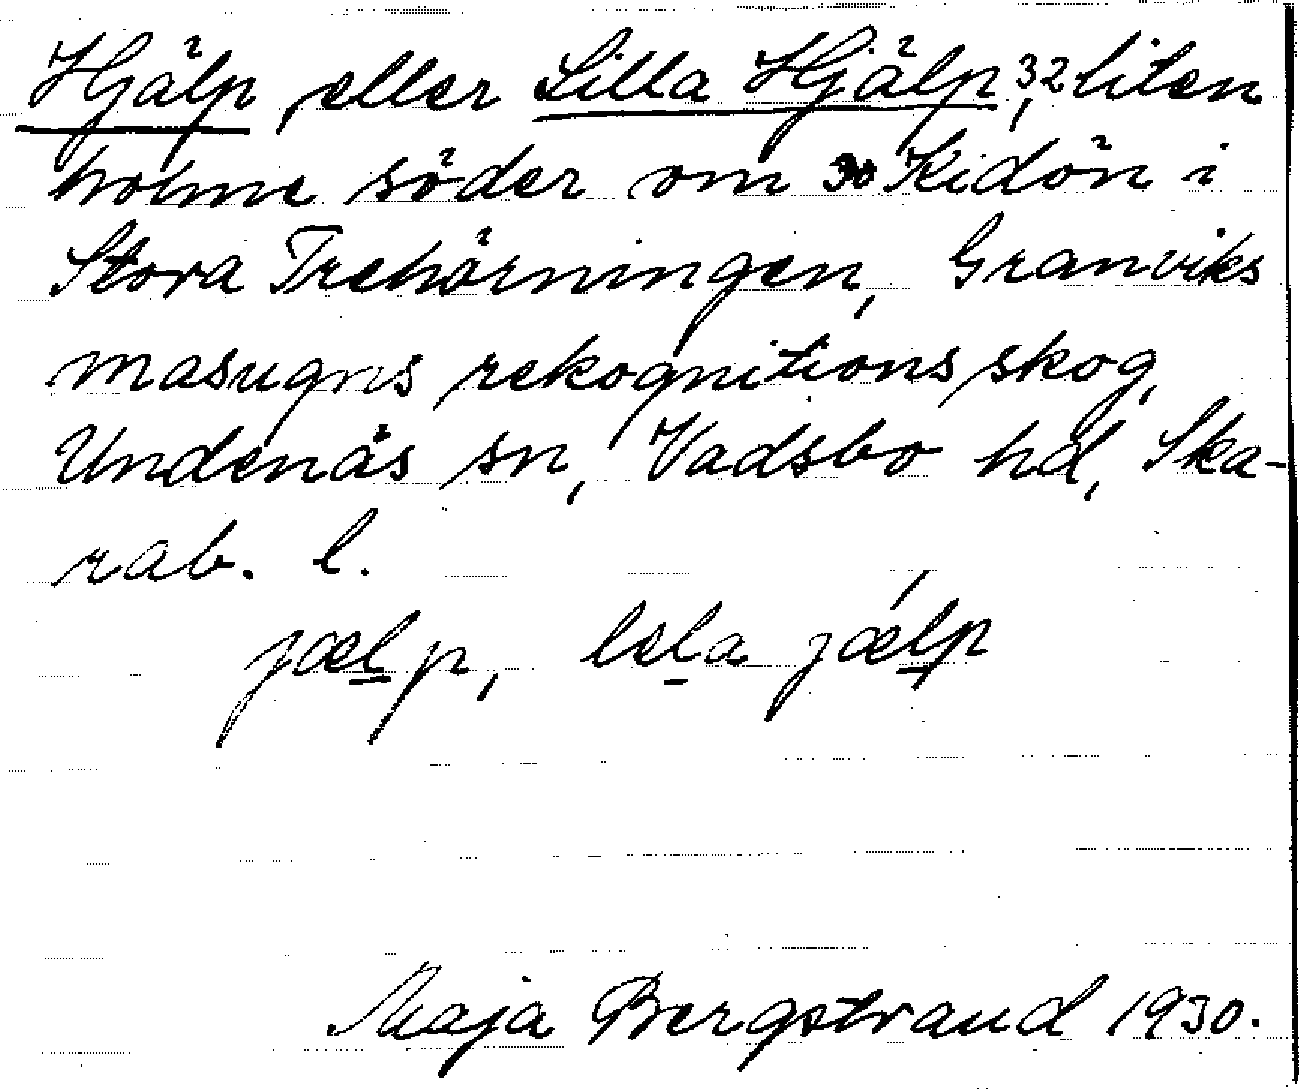 Hjälp, eller Lilla Hjälp, 32 liten
holme söder om 30 Kidön i
Stora Trehörningen, Granviks
masugns rekognitionsskog,
Undenäs sn, Vadsbo hd, Ska-
rab. l.
jælp, lɩla jǽlp
Maja Bergstrand 1930.